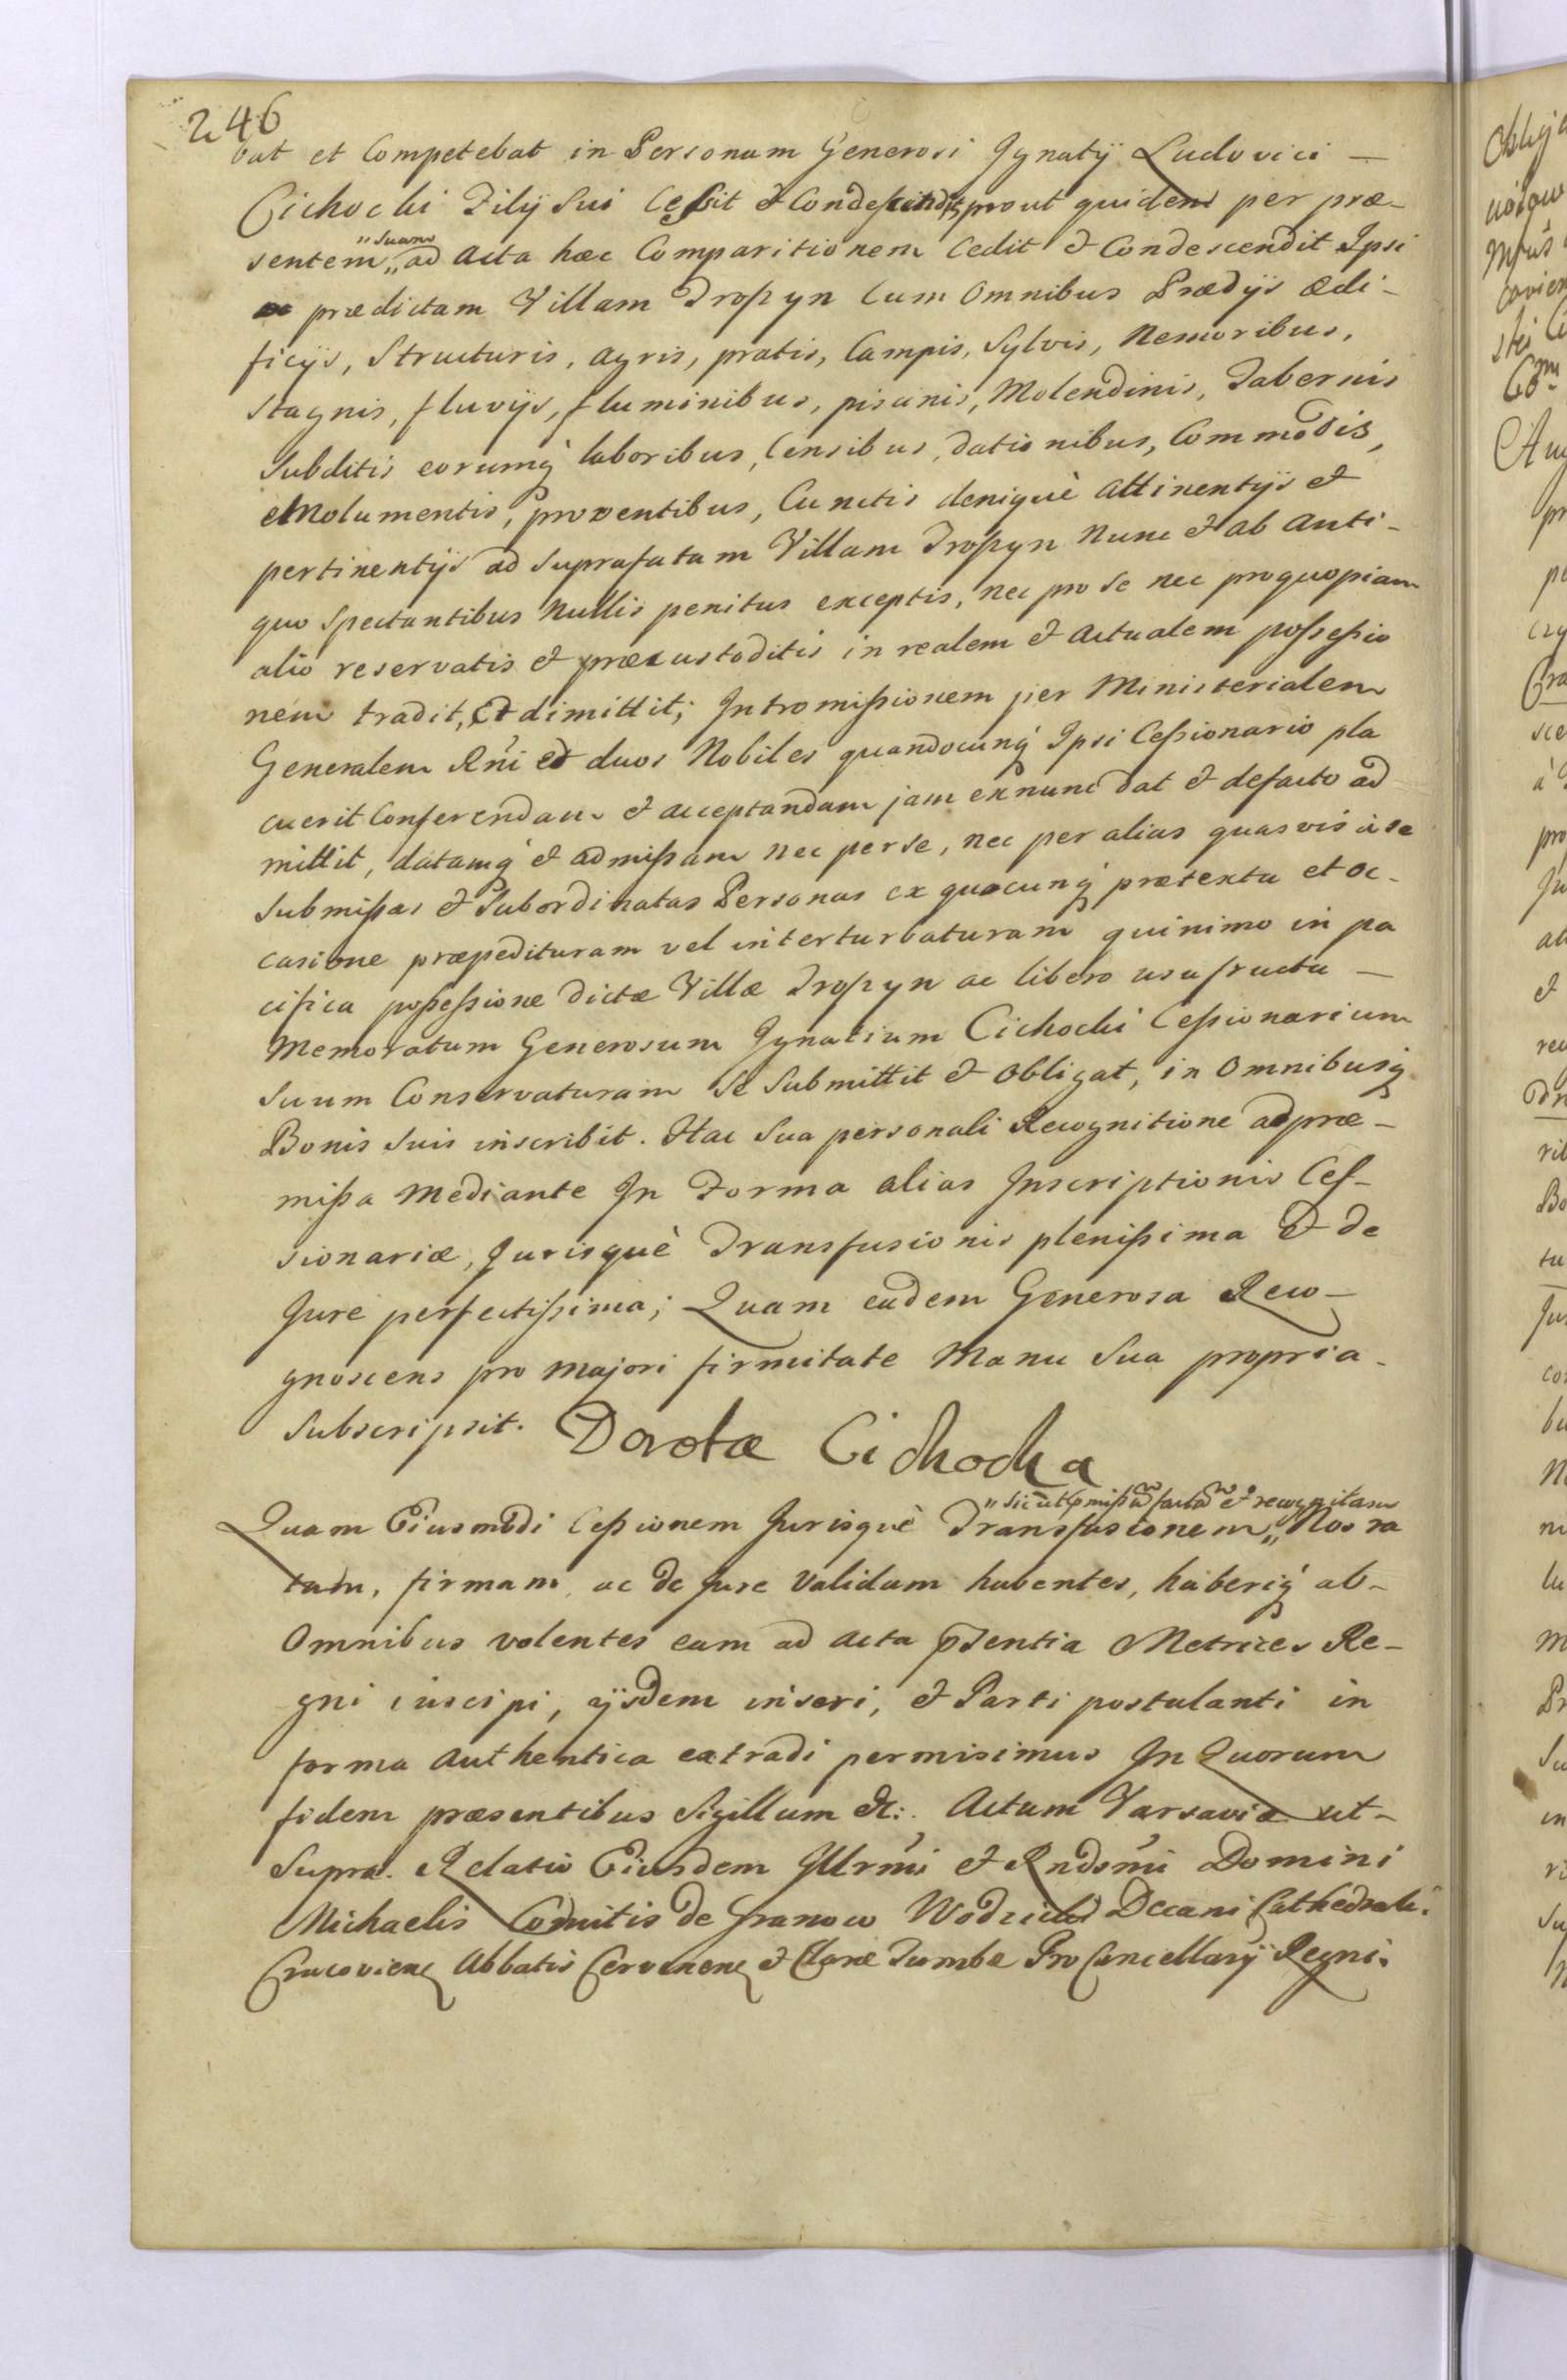 246
bat et Competebat in Personam Generosi Ignatij Ludovici —
Cichocki Filij Sui Cessit & Condescendit, prout quidem per præ-
sentem „suam ad Acta hæc Comparitionem Cedit & Condescendit Ipsi
prædictam Villam Tropzyn Cum Omnibus Prædijs Ædi-
ficijs, Structuris, agris, pratis, Campis, Sylvis, Nemoribus,
Stagnis, fluvijs, fluminibus, piscinis, Molendinis, Tabernis
Subditis eorumq́ laboribus, Censibus, dationibus, Commodis,
eMolumentis, proventibus, Cunctis deniquè Attinentijs et
pertinentijs ad Suprafatam Villam Tropzyn Nunc & ab Anti-
quo Spectantibus Nullis penitus exceptis, nec pro Se nec pro quopiam
alio reservatis & præcustoditis in realem & Actualem possessio
nem tradit, Et dimittit; Intromissionem per Ministerialem
Generalem Rńi et duos Nobiles quandocunq́ Ipsi Cessionario pla
cuerit Conferendam & acceptandam jam exnunc dat & defacto ad
mittit, datamq́ & admissam nec per se, nec per alias quasvis à se
Submissas & Subordinatas Personas ex quocunq́ prætextu et oc-
casione præpedituram vel interturbaturam quinimo in pa
cifica possessione dictæ Villæ Tropzyn ac libero usufructu —
Memoratum Generosum Ignatium Cichocki Cessionarium
Suum Conservaturam Se Submittit & Obligat, in Omnibusq́
Bonis Suis inscribit. Hac Sua personali Recognitione ad præ-
missa Mediante In Forma alias Inscriptionis Ces-
sionariæ, Jurisquè Transfusionis plenissima & de
Jure perfectissima; Quam eadem Generosa Reco-
gnoscens pro Majori firmitate Manu Sua propria-
Subscripsit. Dorota Cichocka
Quam Eiusmodi Cessionem Jurisquè Transfusionem „sicut pmissũ factã & recognitam Nos ra
tam, firmam, ac de Jure Validam habentes, haberiq́ ab-
Omnibus volentes eam ad Acta p̃sentia Metrices Re-
gni suscipi, ijsdem inseri, & Parti postulanti in
forma Authentica extradi permisimus In Quorum
fidem præsentibus Sigillum &c: Actum Varsaviæ ut-
Supra. Relatio Eiusdem Illrmi & Rndśmi Domini
Michaelis Comitis de Granow Wodzicki Decani Cathedralis
Cracovienȩ Abbatis Cervenenȩ & Claræ Tumbæ Pro Cancellarij Regni.